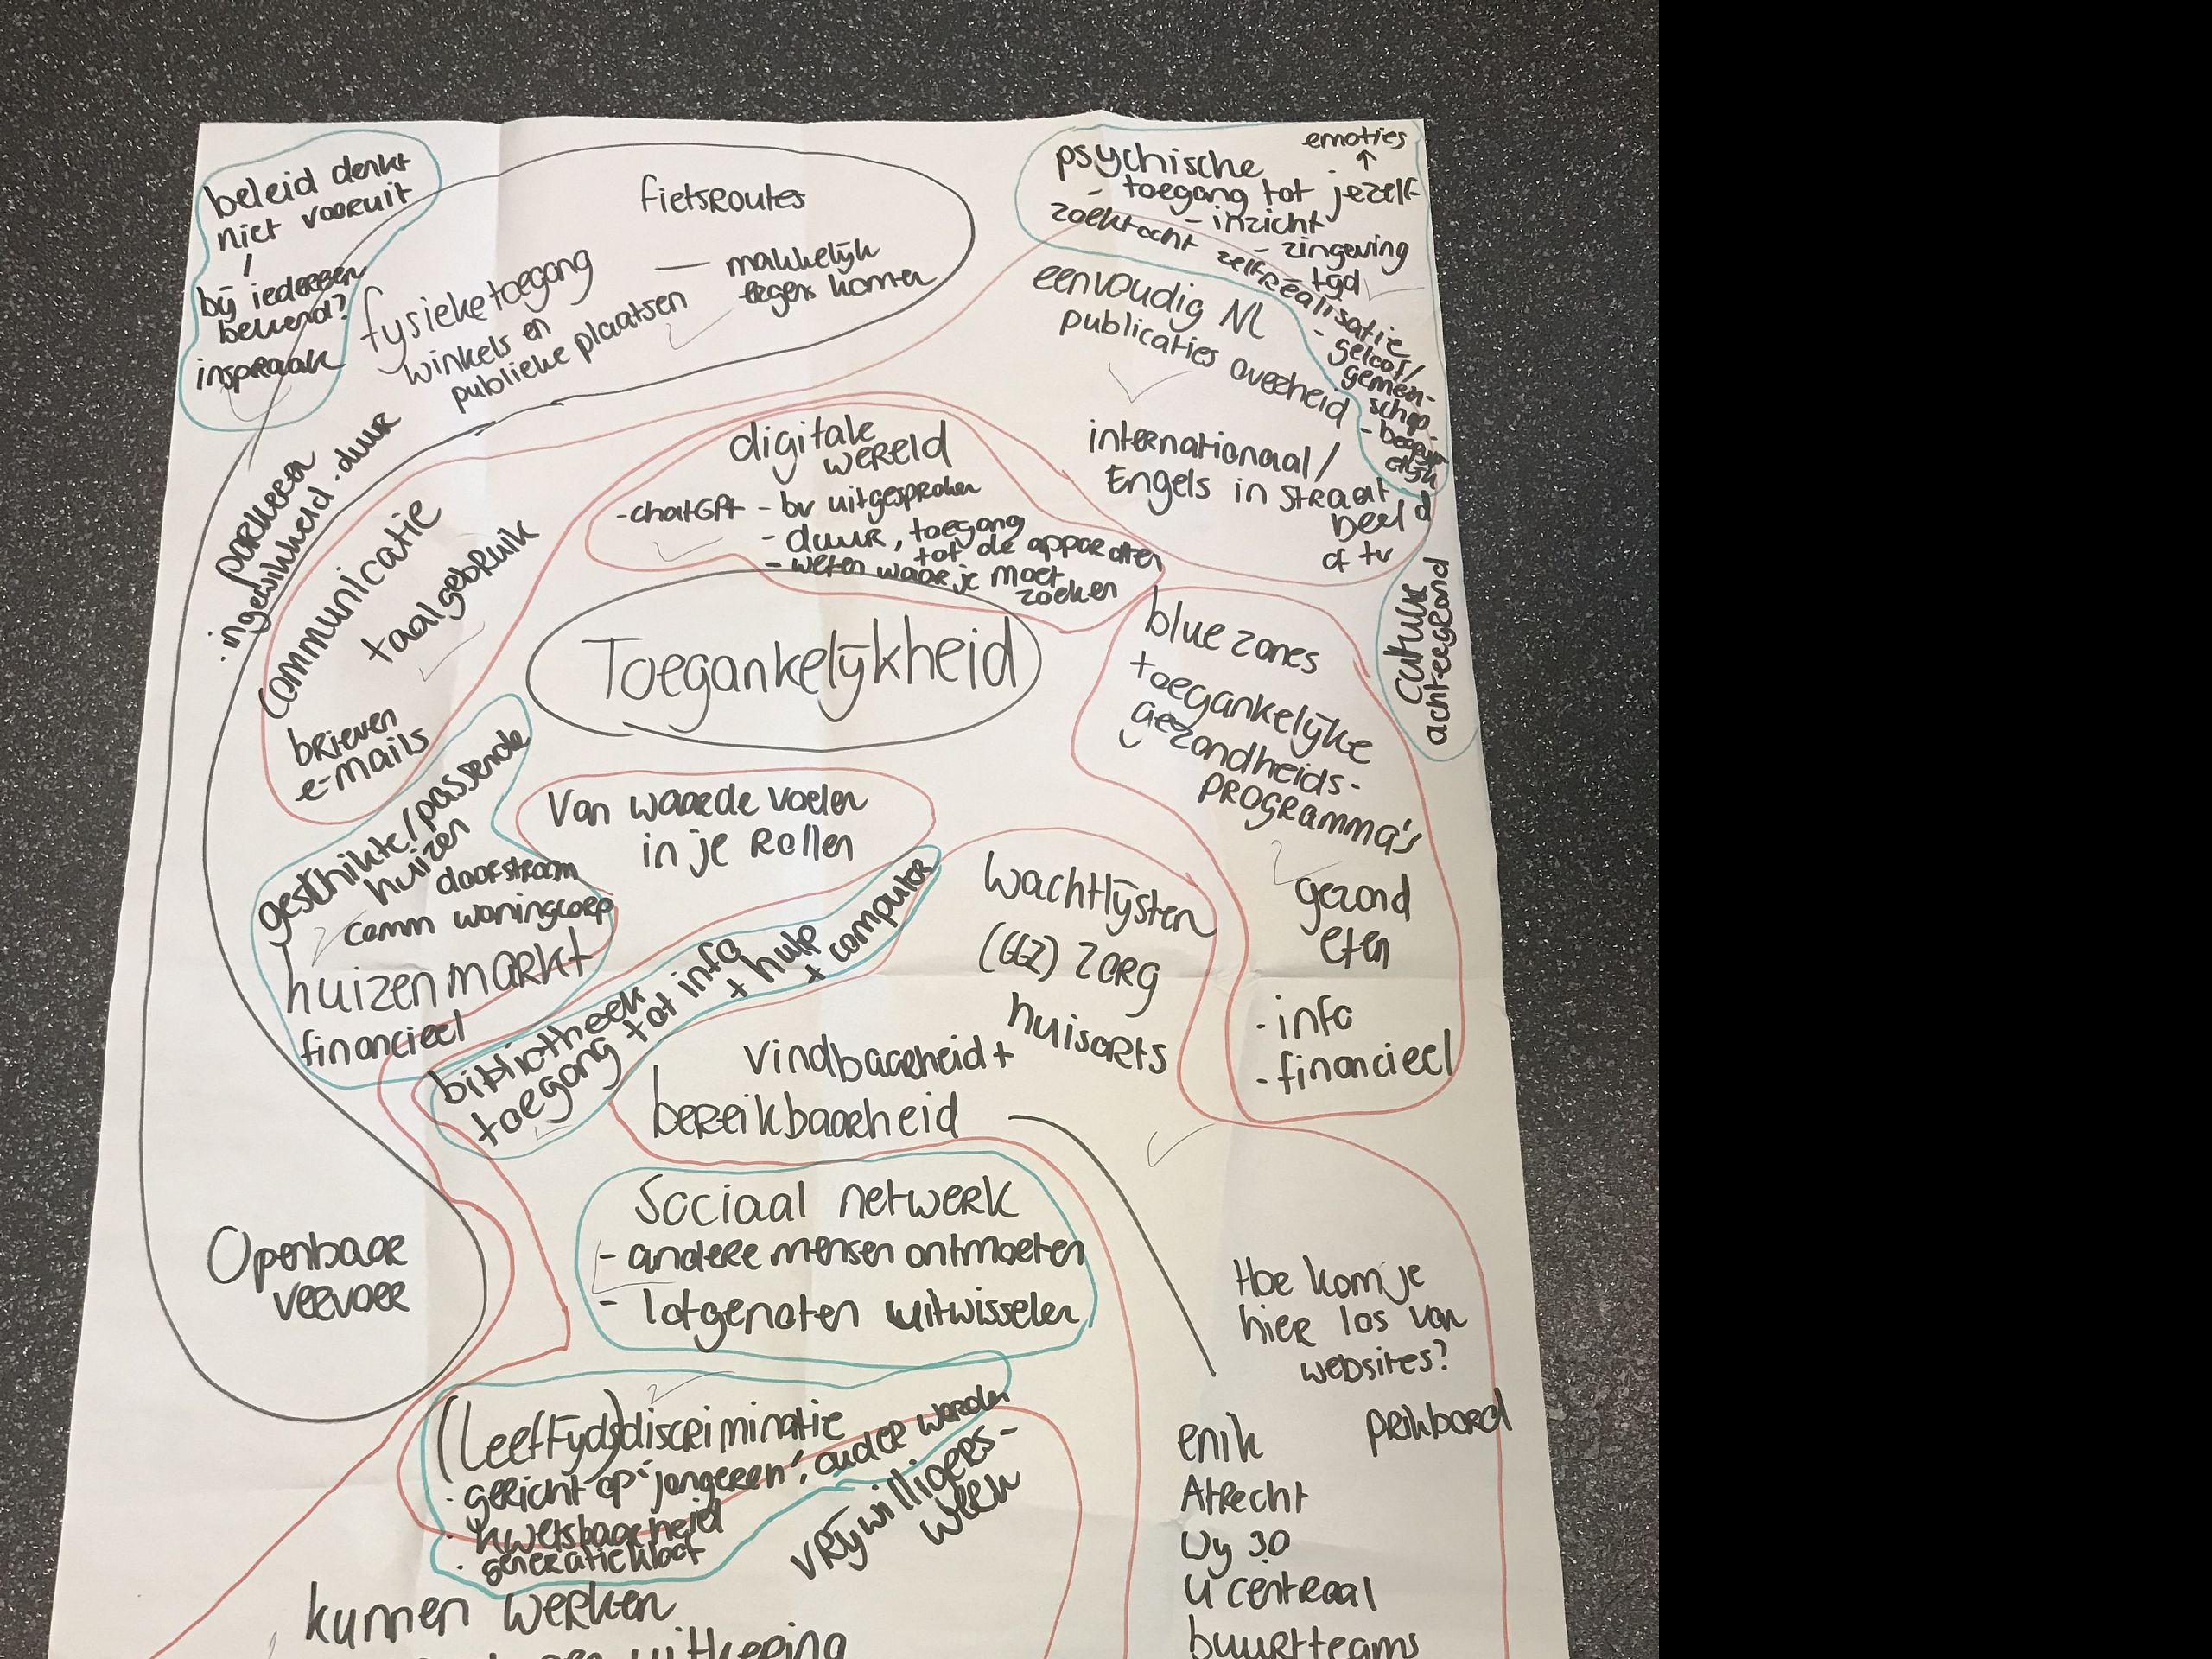 beleid denkt
niet vooruit
bij iedereen
bekend?
inspraak
fietsroutes
fysieke toegang
winkels en
publieke plaatsen
— makkelijk
ergens komen
parkeren
· ingewikkeld · duur
Openbaar
vervoer
emoties
↑
psychische
- toegang tot jezelf
- inzicht
- zingeving
tijd
zoektocht zelfrealisatie
- geloof/
gemeen-
schap
eenvoudig NL
publicaties overheid
internationaal/
Engels in straat
beeld
of tv
cultuur
achtergrond
communicatie
taalgebruik
brieven
e-mails
digitale
wereld
- chatGPt - bv uitgesproken
- duur, toegang
tot de apparaten
- weten waar je moet
zoeken
Toegankelijkheid
blue zones
toegankelijke
gezondheids-
programma's
gezond
eten
- info
- financieel
Van waarde voelen
in je rollen
geschikte/passende
huizen
doorstroom
comm woningcorp
huizenmarkt
financieel
bibliotheek
toegang tot info
+ hulp
+ computer
wachtlijsten
(GGZ) zorg
huisarts
vindbaarheid +
bereikbaarheid
Sociaal netwerk
- andere mensen ontmoeten
- lotgenoten uitwisselen
Hoe kom je
hier los van
websites?
prikbord
enik
Atrecht
Wij 30
U centraal
buurtteams
(Leeftijds)discriminatie
· gericht op 'jongeren', ouder worden
· kwetsbaarheid
· generatiekloof
vrijwilligers-
werk
kunnen werken
uitkering